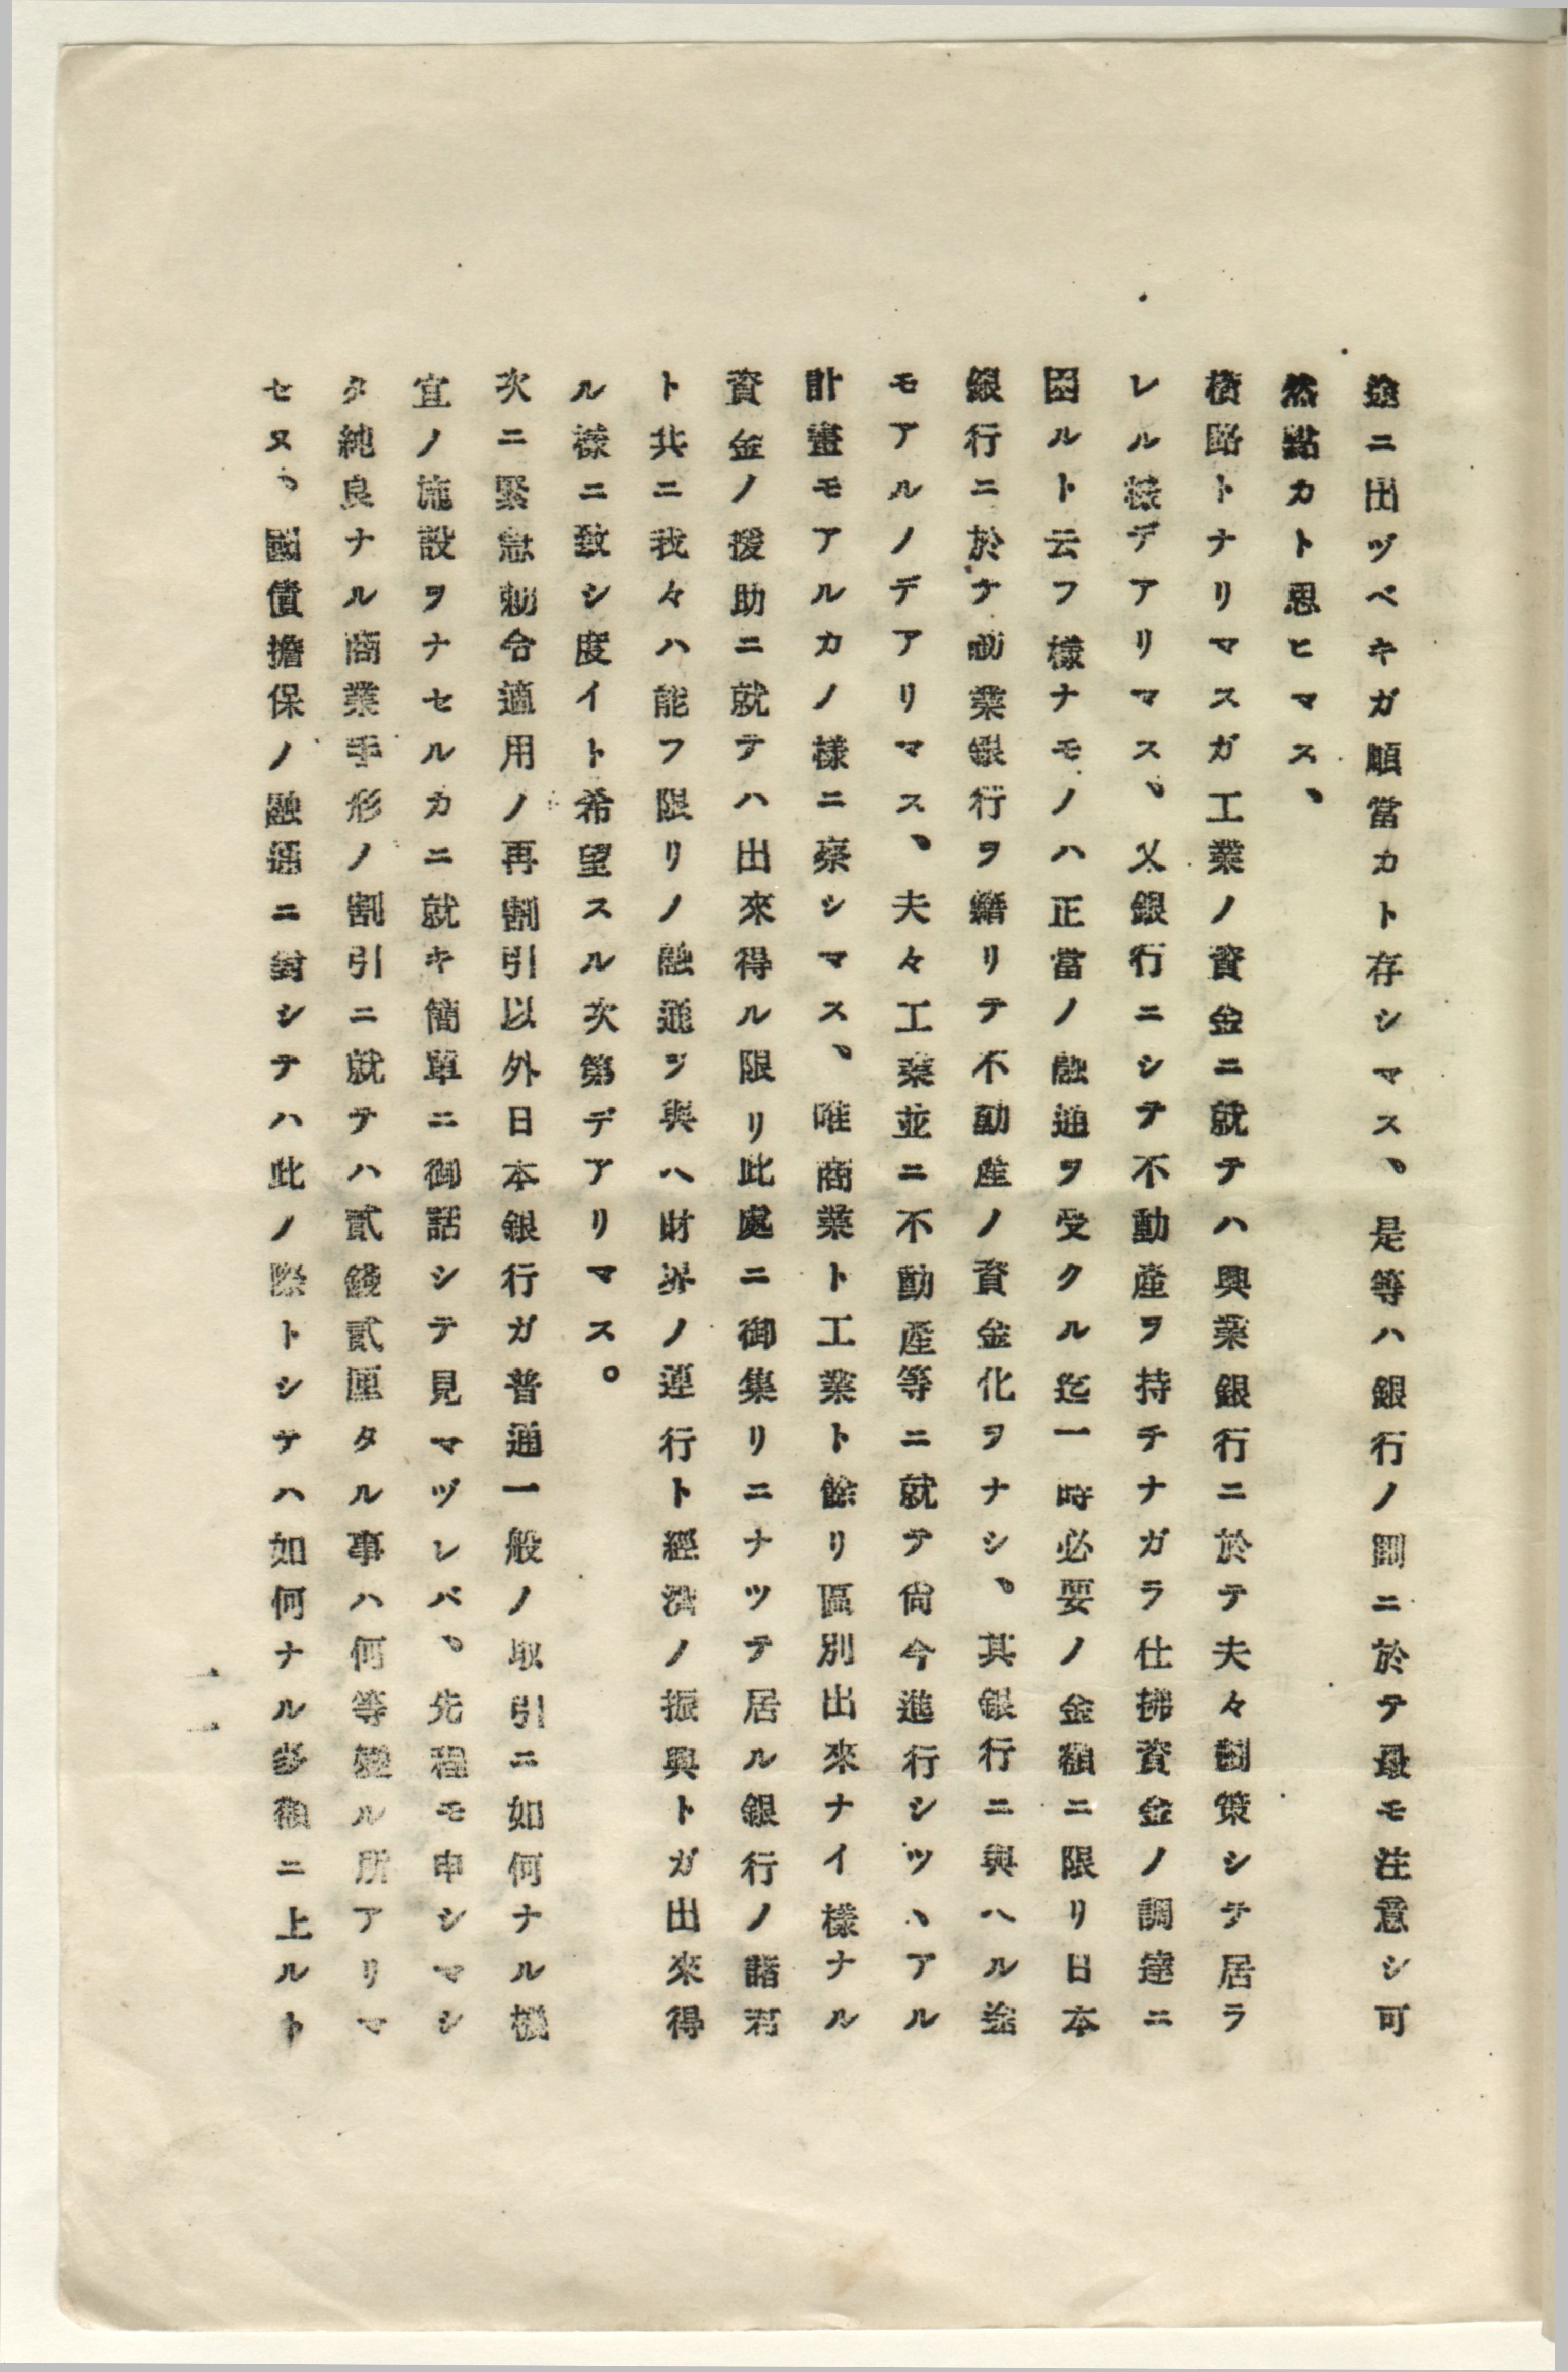 途ニ出ヅベキガ順當カト存シマス、是等ハ銀行ノ間ニ於テ最モ注意シ可
然點カト思ヒマス、
積路トナリマスガ工業ノ資金ニ就テハ興業銀行ニ於テ夫々劃策シテ居ラ
レル樣デアリマス、又銀行ニシテ不動産ヲ持チナガラ仕拂資金ノ調達ニ
困ルト云フ樣ナモノハ正當ノ融通ヲ受クル迄一時必要ノ金額ニ限リ日本
銀行ニ於テ勸業銀行ヲ藉リテ不動産ノ資金化ヲナシ、其銀行ニ與ヘル途
モアルノデアリマス、夫々工業並ニ不動産等ニ就テ尙今進行シツヽアル
計畫モアルカノ樣ニ察シマス、唯商業ト工業ト餘リ區別出來ナイ樣ナル
資金ノ援助ニ就テハ出來得ル限リ此處ニ御集リニナツテ居ル銀行ノ諸君
ト共ニ我々ハ能フ限リノ融通ヲ與ヘ財界ノ運行ト經濟ノ振興トガ出來得
ル樣ニ致シ度イト希望スル次第デアリマス。
次ニ緊急勅令適用ノ再割引以外日本銀行ガ普通一般ノ取引ニ如何ナル機
宜ノ施設ヲナセルカニ就キ簡單ニ御話シテ見マヅレバ、先程モ申シマシ
タ純良ナル商業手形ノ割引ニ就テハ貳錢貳厘タル事ハ何等變ル所アリマ
セヌ、國債擔保ノ融通ニ對シテハ此ノ際トシテハ如何ナル多額ニ上ルト
一一